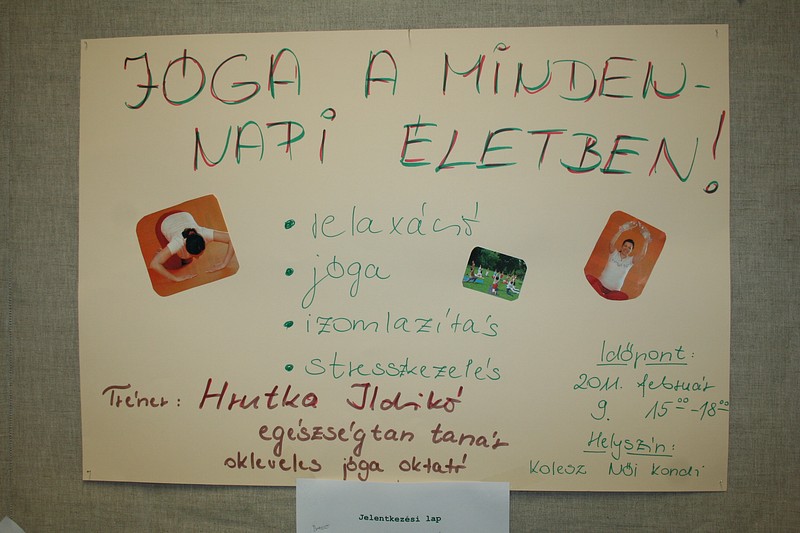 JÓGA A MINDEN-
NAPI ÉLETBEN!
• relaxáció
• jóga
• izomlazítás
• stresszkezelés
Tréner: Hrutka Ildikó
egészségtan tanár
okleveles jóga oktató
Időpont:
2011. február
9. 15 00 - 18 00
Helyszín:
Kolesz Női Kondi
Jelentkezési lap